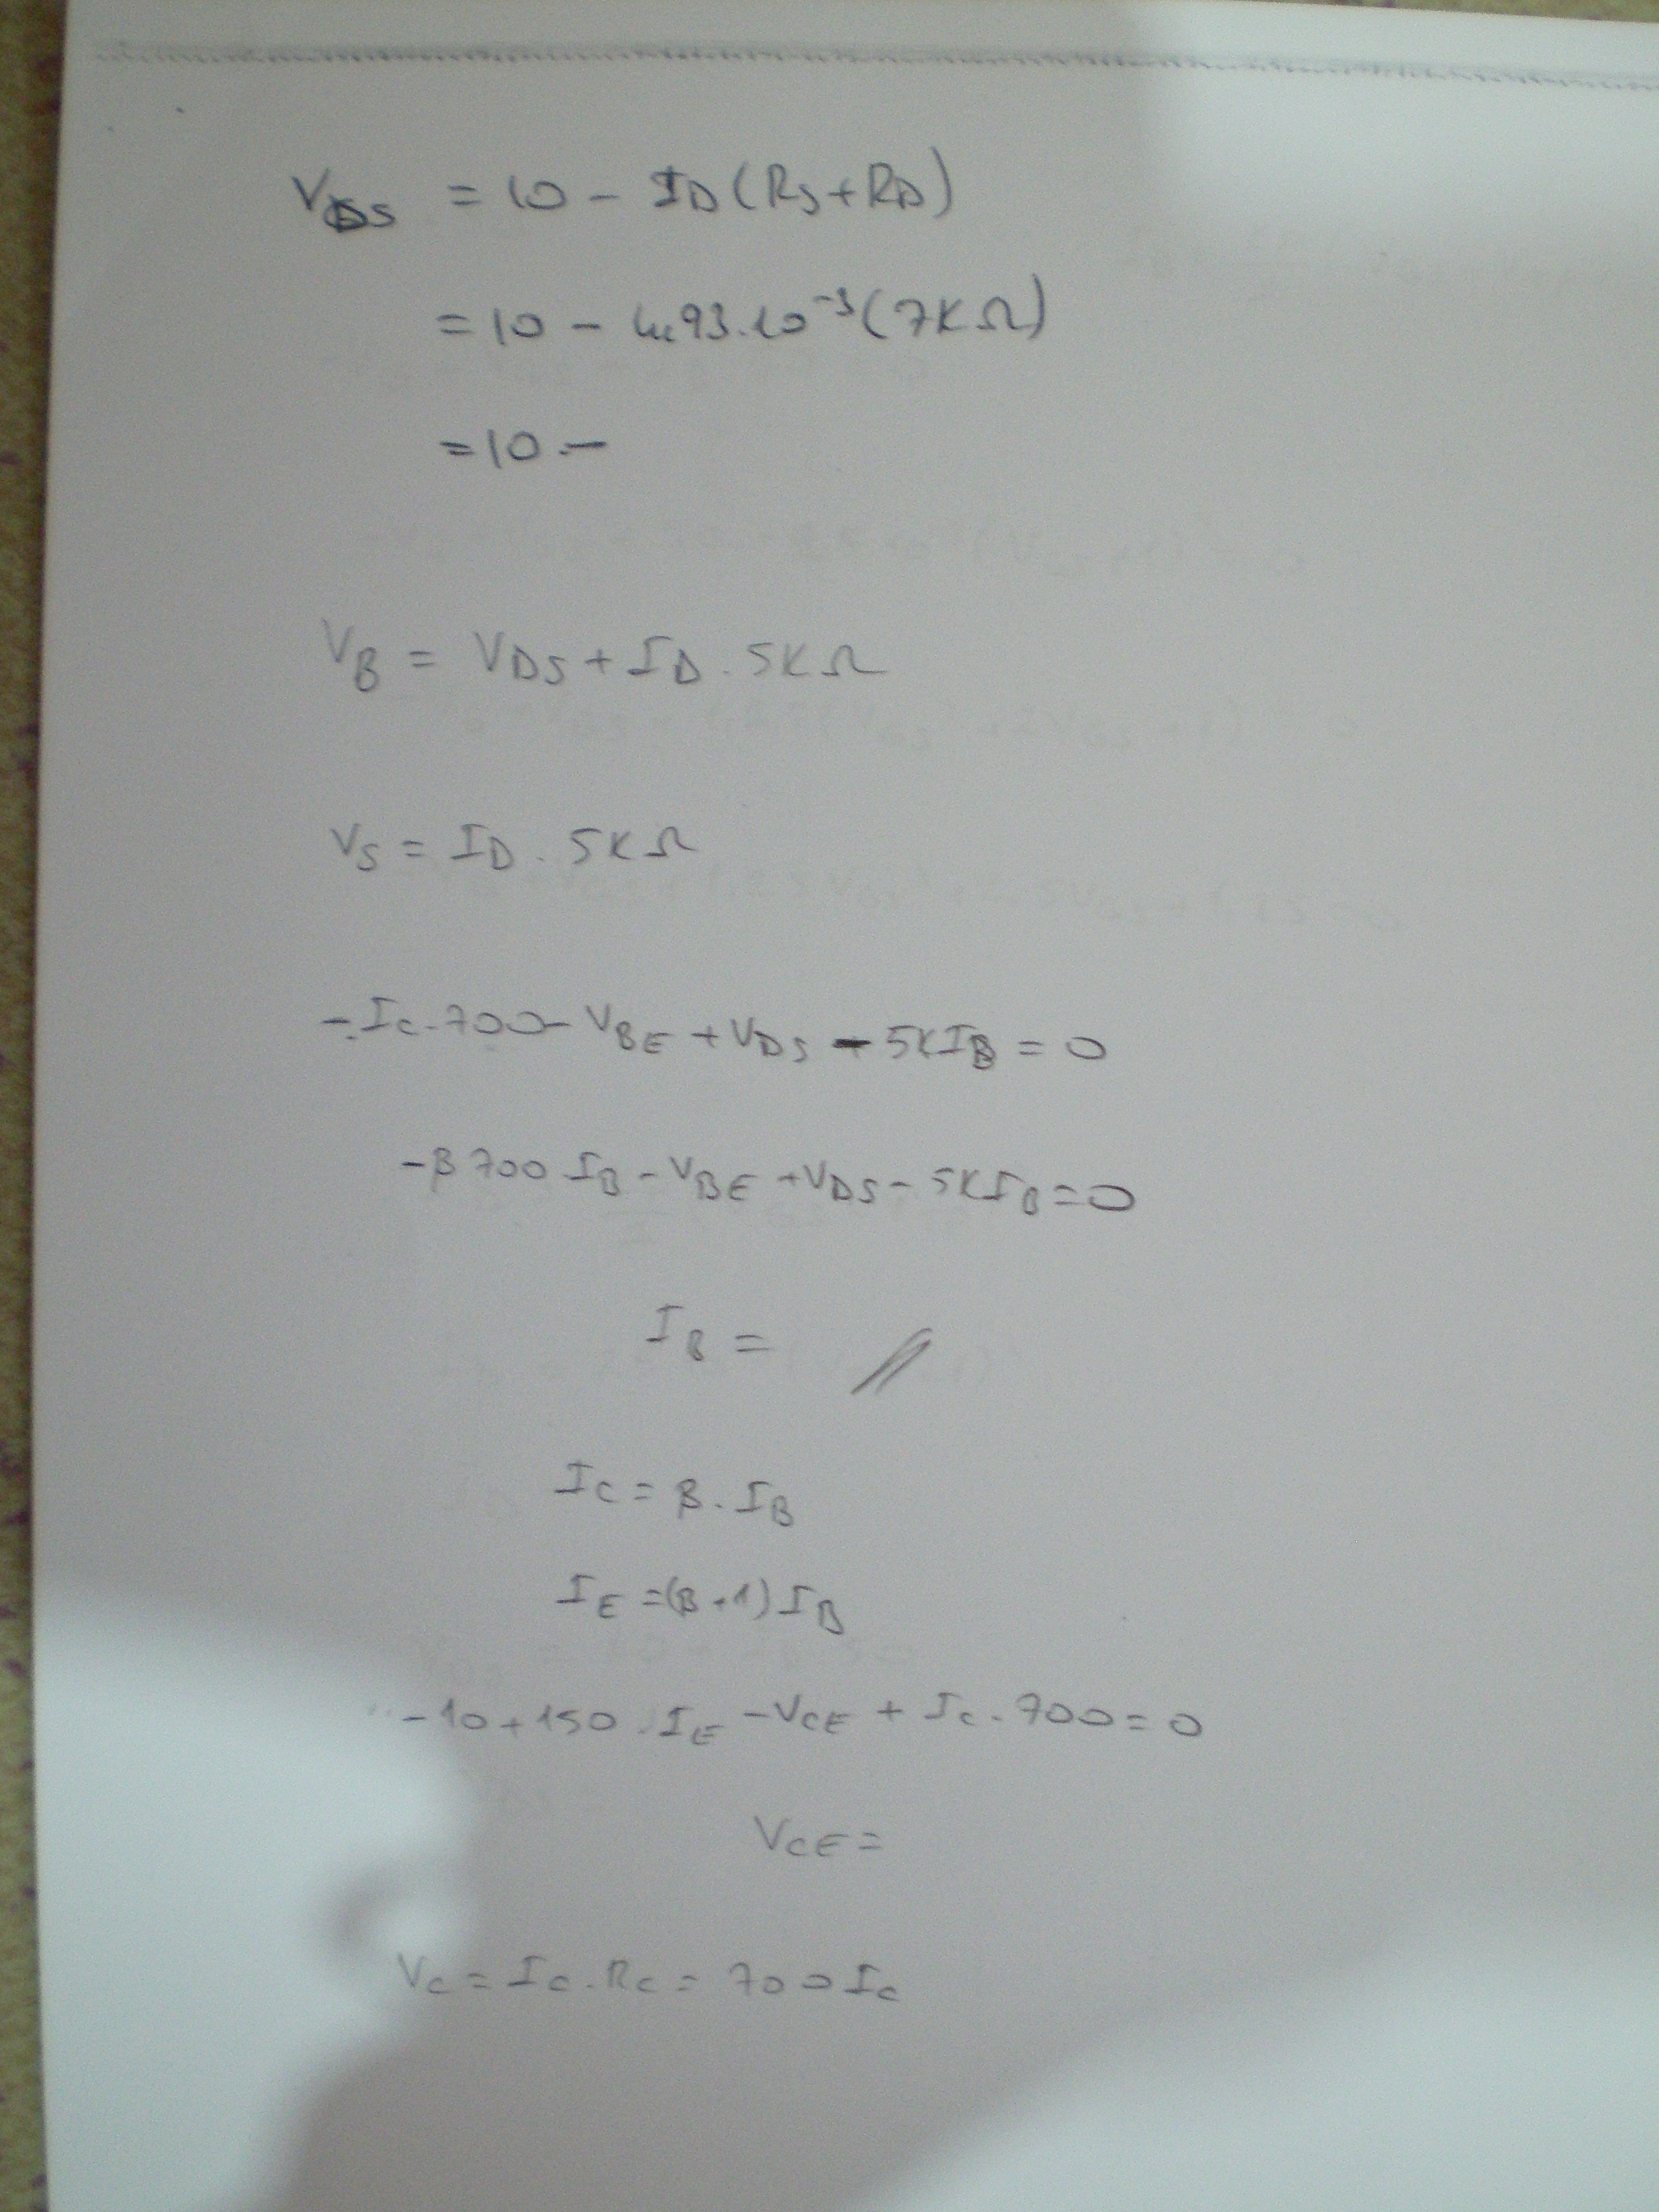 VDS = 10 - ID(RS+RD)
= 10 - 4.93.10⁻³(7KΩ)
= 10 -
VB = VDS + ID . 5KΩ
VS = ID . 5KΩ
- IC.700 - VBE + VDS - 5KIB = 0
-β 700 IB - VBE + VDS - 5KIB = 0
IB =
IC = β . IB
IE = (β+1) IB
-10 + 150 . IE - VCE + IC . 700 = 0
VCE =
VC = IC . RC = 700 IC